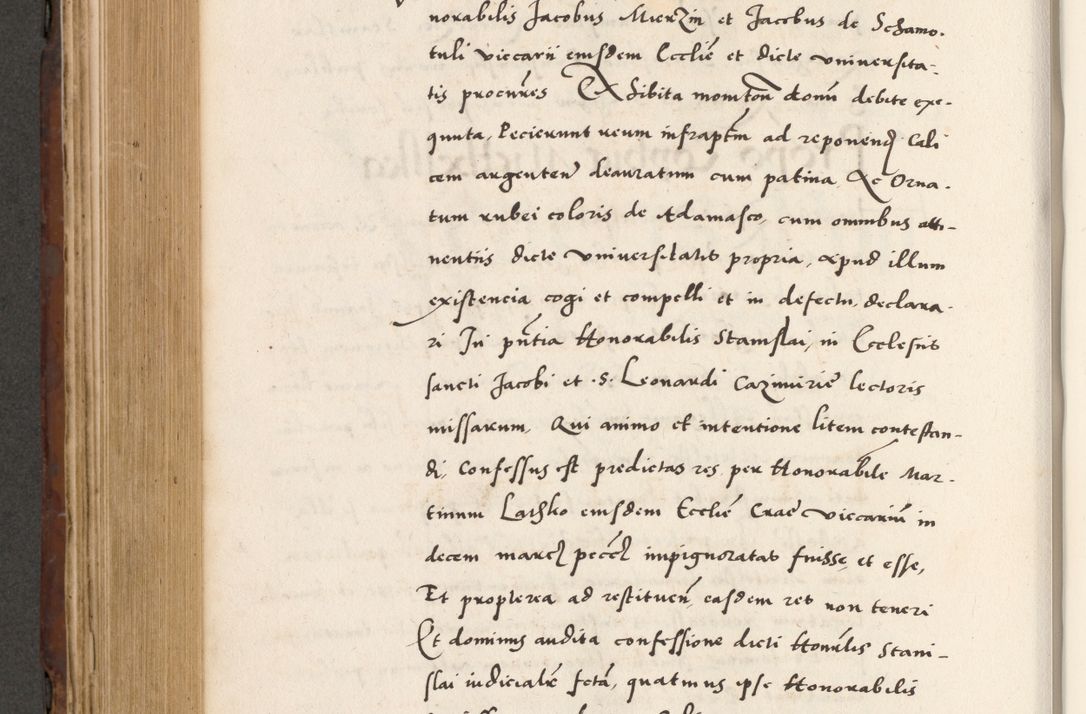 norabilis Jacobus Mierzin et Jacobus de Schamo-
tuli viccarii eiusdem Ecclie et dicte universita-
tis procures Exhibita monitoń donń debite exe-
quuta, Pecierunt reum infraptm ad reponend Cali
cem argenteū deauratum cum patina, Ac Orna-
tum rubei coloris de Adamasco, cum omnibus atti-
nentiis dicte universitatis propria, apud illum
existencia cogi et compelli et in defectu, declara-
ri In pntia Honorabilis Stanislai, in Ecclesiis
sancti Jacobi et .S. Leonardi Cazimirie lectoris
missarum, Qui animo et intentione litem contestan-
di, Confessus est predictas res, per Honorabile Mar-
tinum Lathko eiusdem Ecclie Crae viccariū in
decem marc pecc impignoratas fuisse, et esse,
Et propterea ad restituen, easdem res non teneri
Et dominus audita confessione dicti Honulis Stani-
slai iudicialr fctā, quatinus ipse Honorabilis